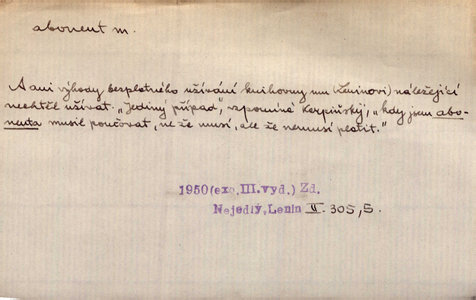 abonent m.
A ani výhody bezplatného užívání knihovny mu (Leninovi) náležející
nechtěl užívat. „Jediný případ”, vzpomíná Karpinskij, „kdy jsem abo-
nenta musil poučovat, ne že musí, ale že nemusí platit.”
1950 (exc. III. vyd.) Zd.
Nejedlý, Lenin II. 305,5.